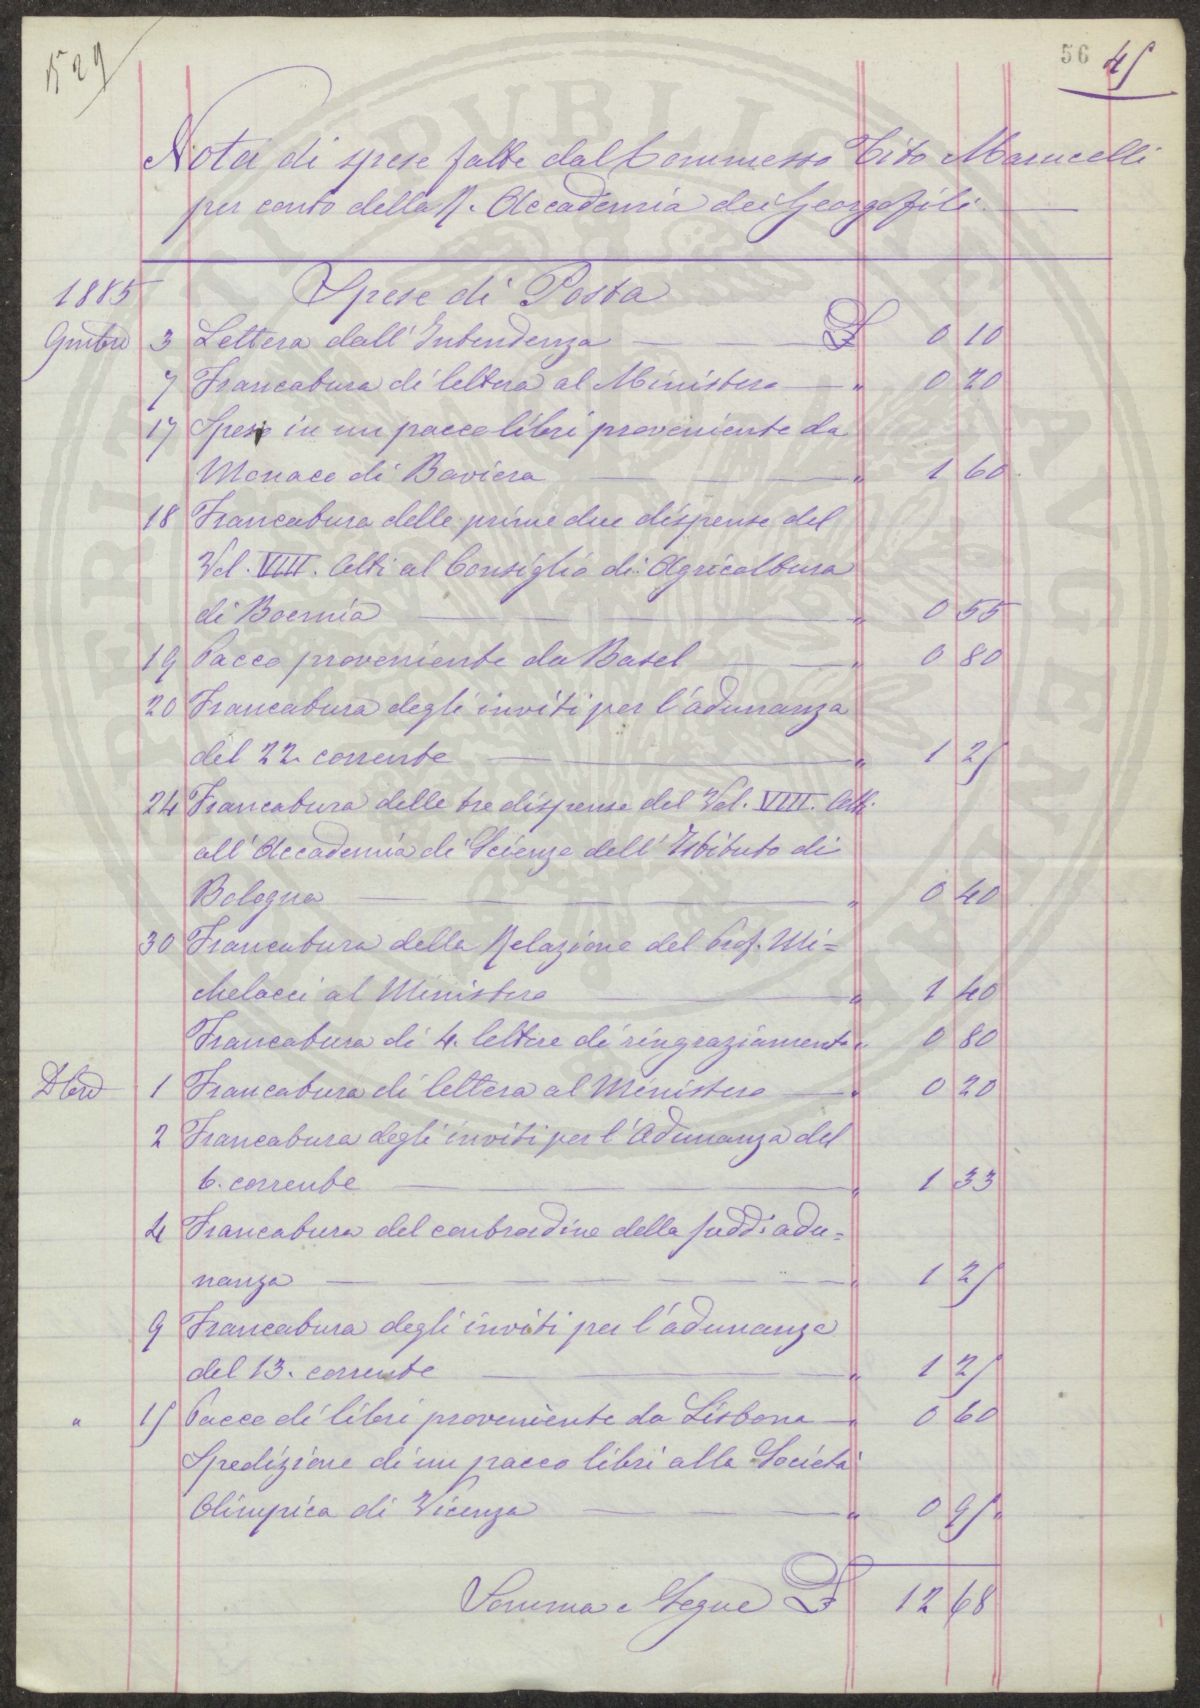 529
56 45
Nota di spese fatte dal Commesso Tito Marucelli
per conto della R. Accademia dei Georgofili
1885 Spese di Posta
3 Lettera dall'Intendenza £ 0 10
7 Francatura di lettera al Ministero " 0 20
17 Spese in un pacco libri proveniente da
Monaco di Baviera " 1 60
18 Francatura delle prime due dispense del
Vol. VIII. Atti al Consiglio di Agricoltura
di Boemia " 0 55
19 Pacco proveniente da Basel " 0 80
20 Francatura degli inviti per l'adunanza
del 22. corrente " 1 25
24 Francatura delle tre dispense del Vol. VIII. Atti
all'Accademia di Scienze dell'Istituto di
Bologna " 0 40
30 Francatura della Relazione del Prof. Mi=
chelacci al Ministero " 1 40
Francatura di 4. lettere di ringraziamento " 0 80
Dbre 1 Francatura di lettera al Ministero " 0 20
2 Francatura degli inviti per l'Adunanza del
6. corrente " 1 33
4 Francatura del contrordine della sudd: adu=
nanza " 1 25
9 Francatura degli inviti per l'adunanza
del 13. corrente " 1 25
" 15 Pacco di libri proveniente da Lisbona " 0 60
Spedizione di un pacco libri alla Società
Olimpica di Vicenza " 0 95
Somma e Segue £ 12 68